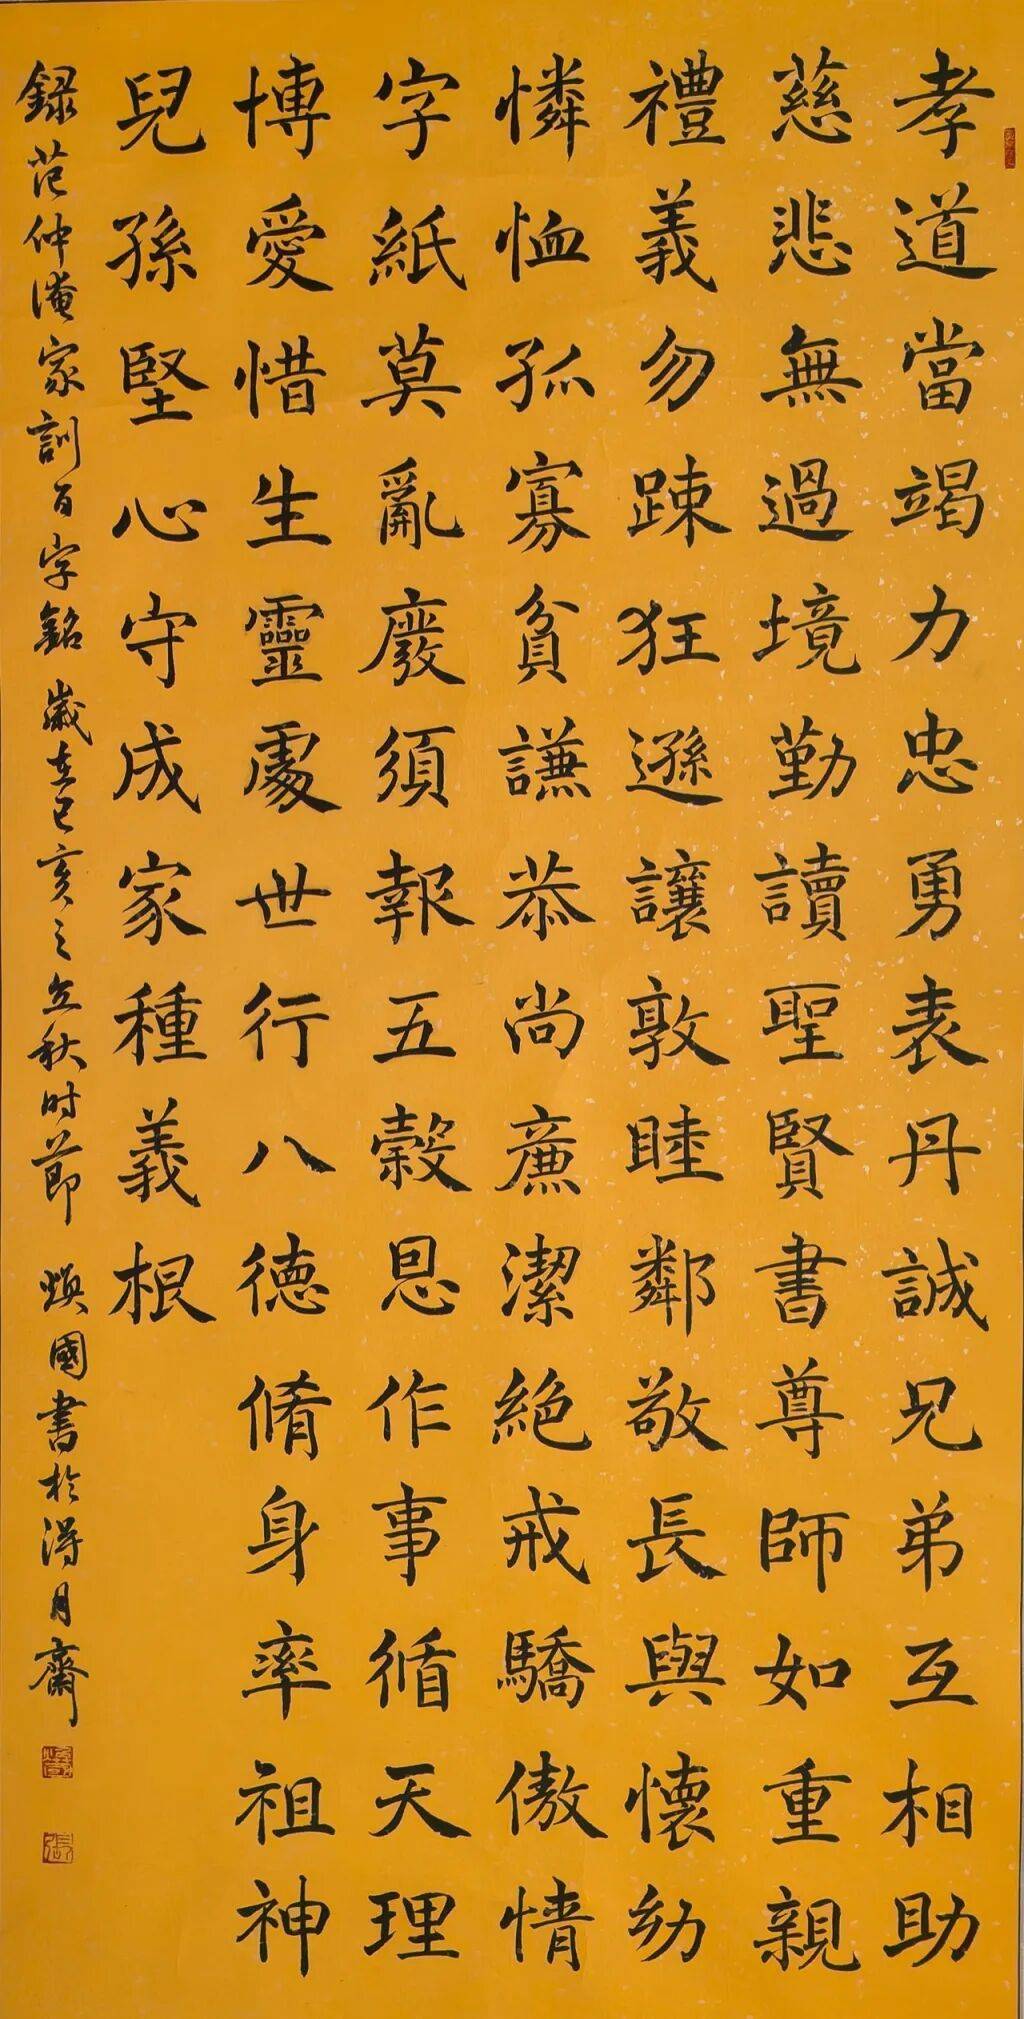 孝道當竭力忠勇表丹誠兄弟互相助
慈悲無過境勤讀聖賢書尊師如重親
禮義勿踈狂遜讓敦睦鄰敬長與懷幼
憐恤孤寡貧謙恭尚廉潔絕戒驕傲情
字紙莫亂廢須報五穀恩作事循天理
博愛惜生靈處世行八德脩身率祖神
兒孫堅心守成家種義根
録范仲淹家訓百字銘歲在己亥之立秋时節 煥國書於得月齋